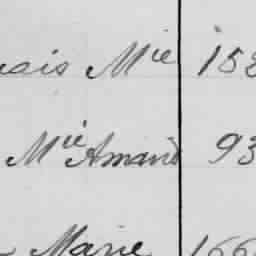 ais Mie 158
Mie Amand 93
Marie 166